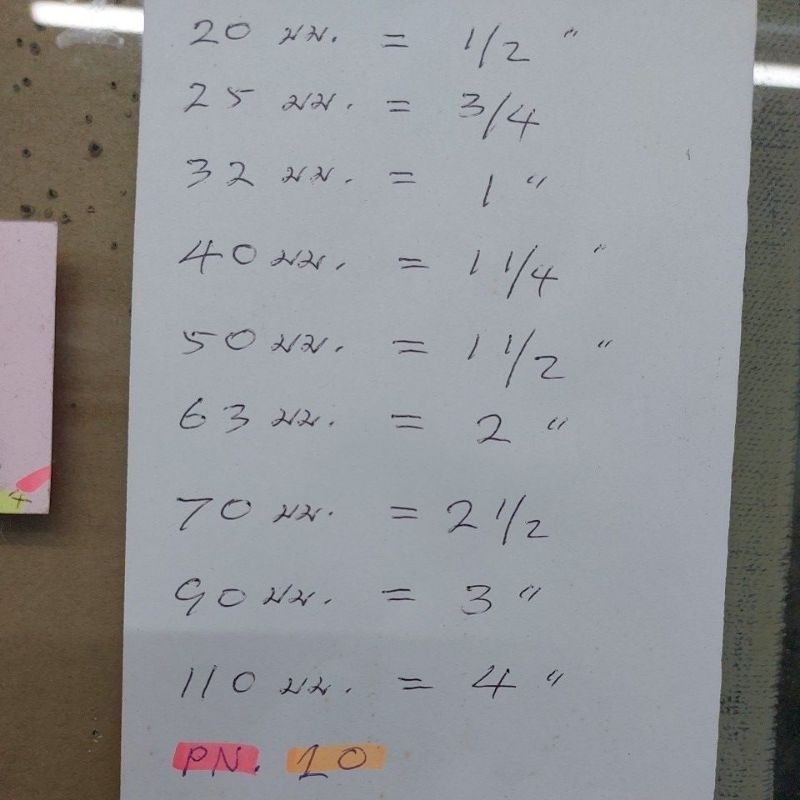 20 มม. = 1/2 "
25 มม. = 3/4
32 มม. = 1 "
40 มม. = 1 1/4 "
50 มม. = 1 1/2 "
63 มม. = 2 "
70 มม. = 2 1/2
90 มม. = 3 "
110 มม. = 4 "
PN. 10
4